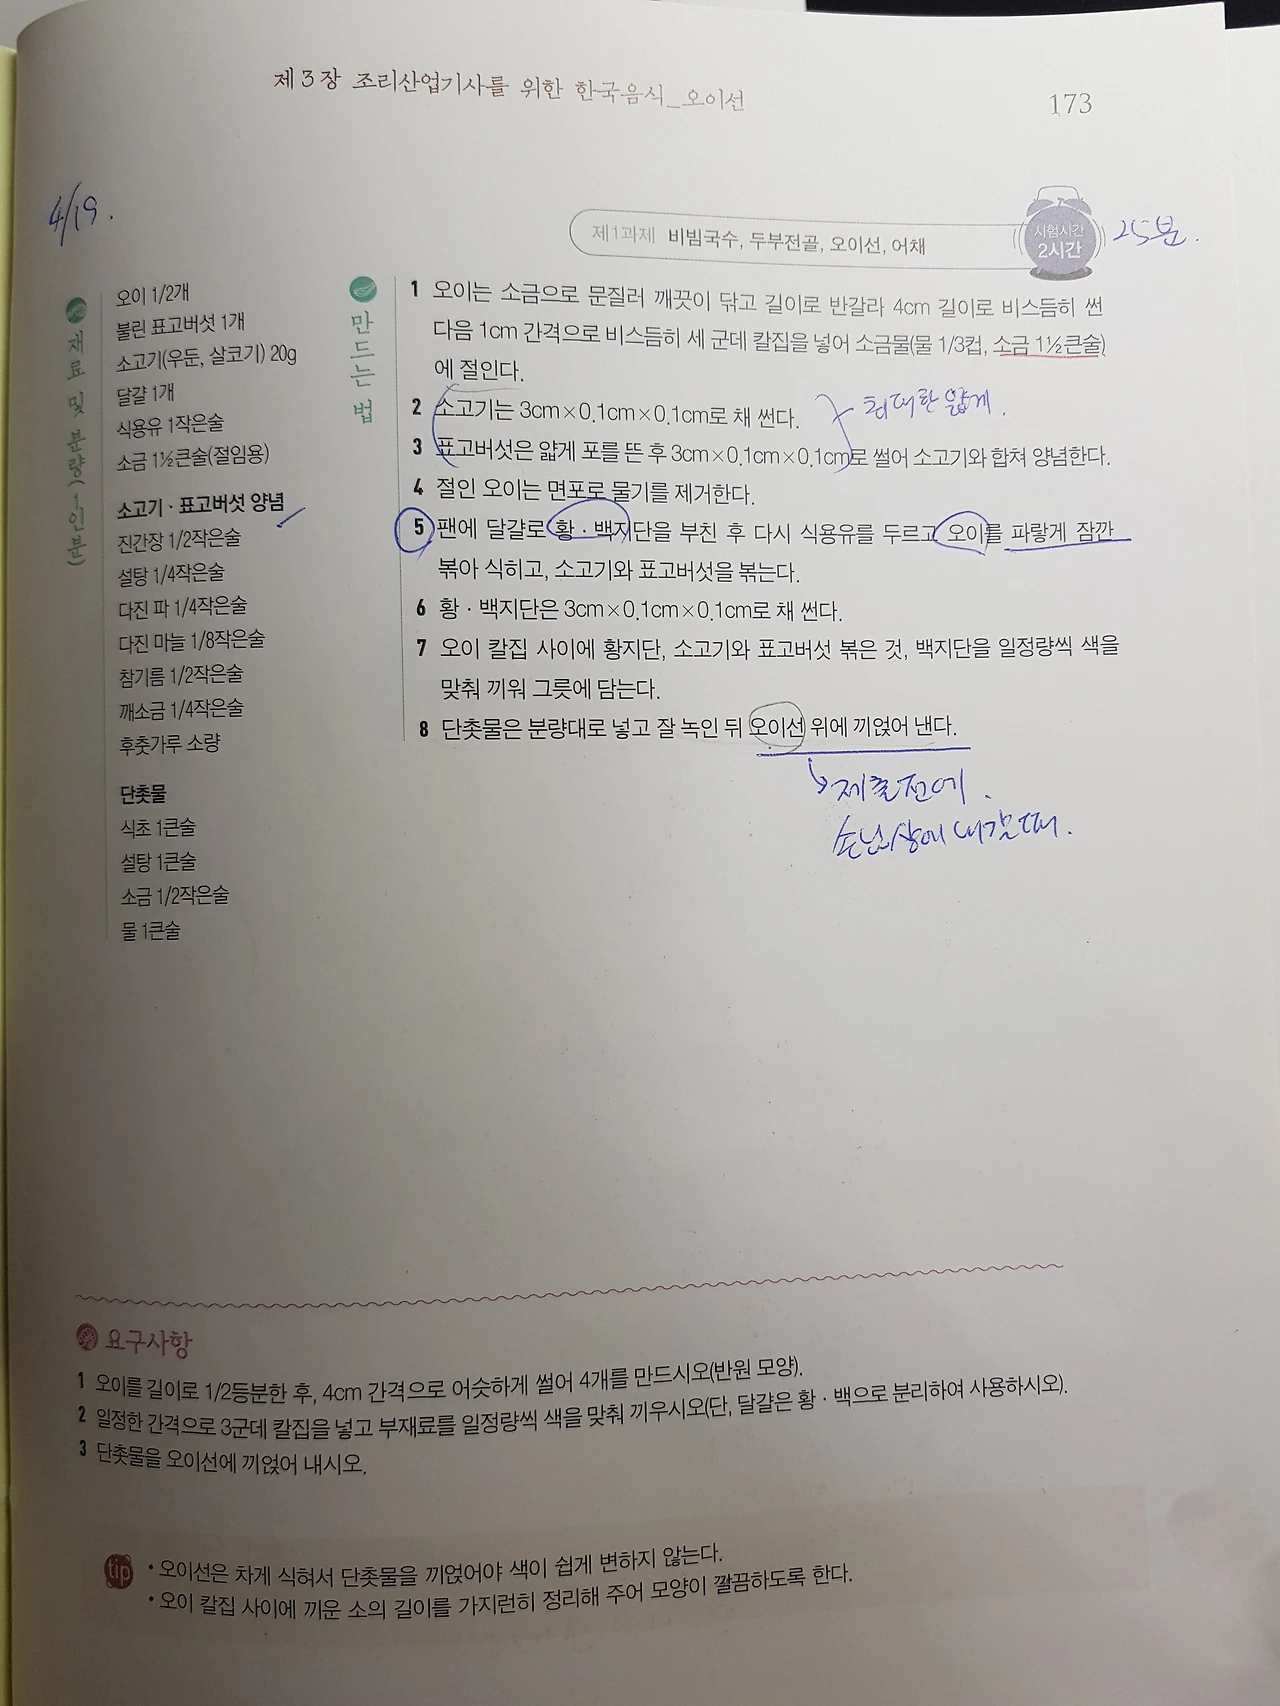 제3장 조리산업기사를 위한 한국음식_오이선
173
4/19.
제1과제 비빔국수, 두부전골, 오이선, 어채
시험시간
2시간
25분.
재료 및 분량(1인분)
오이 1/2개
불린 표고버섯 1개
소고기(우둔, 살코기) 20g
달걀 1개
식용유 1작은술
소금 1½큰술(절임용)
소고기 · 표고버섯 양념
진간장 1/2작은술
설탕 1/4작은술
다진 파 1/4작은술
다진 마늘 1/8작은술
참기름 1/2작은술
깨소금 1/4작은술
후춧가루 소량
단촛물
식초 1큰술
설탕 1큰술
소금 1/2작은술
물 1큰술
만드는 법
1 오이는 소금으로 문질러 깨끗이 닦고 길이로 반갈라 4cm 길이로 비스듬히 썬
다음 1cm 간격으로 비스듬히 세 군데 칼집을 넣어 소금물(물 1/3컵, 소금 1½큰술)
에 절인다.
2 소고기는 3cm×0.1cm×0.1cm로 채 썬다.
최대한 얇게.
3 표고버섯은 얇게 포를 뜬 후 3cm×0.1cm×0.1cm로 썰어 소고기와 합쳐 양념한다.
4 절인 오이는 면포로 물기를 제거한다.
5 팬에 달걀로 황 · 백지단을 부친 후 다시 식용유를 두르고 오이를 파랗게 잠깐
볶아 식히고, 소고기와 표고버섯을 볶는다.
6 황 · 백지단은 3cm×0.1cm×0.1cm로 채 썬다.
7 오이 칼집 사이에 황지단, 소고기와 표고버섯 볶은 것, 백지단을 일정량씩 색을
맞춰 끼워 그릇에 담는다.
8 단촛물은 분량대로 넣고 잘 녹인 뒤 오이선 위에 끼얹어 낸다.
제출전에.
손님상에 내갈때.
요구사항
1 오이를 길이로 1/2등분한 후, 4cm 간격으로 어슷하게 썰어 4개를 만드시오(반원 모양).
2 일정한 간격으로 3군데 칼집을 넣고 부재료를 일정량씩 색을 맞춰 끼우시오(단, 달걀은 황 · 백으로 분리하여 사용하시오).
3 단촛물을 오이선에 끼얹어 내시오.
tip
• 오이선은 차게 식혀서 단촛물을 끼얹어야 색이 쉽게 변하지 않는다.
• 오이 칼집 사이에 끼운 소의 길이를 가지런히 정리해 주어 모양이 깔끔하도록 한다.